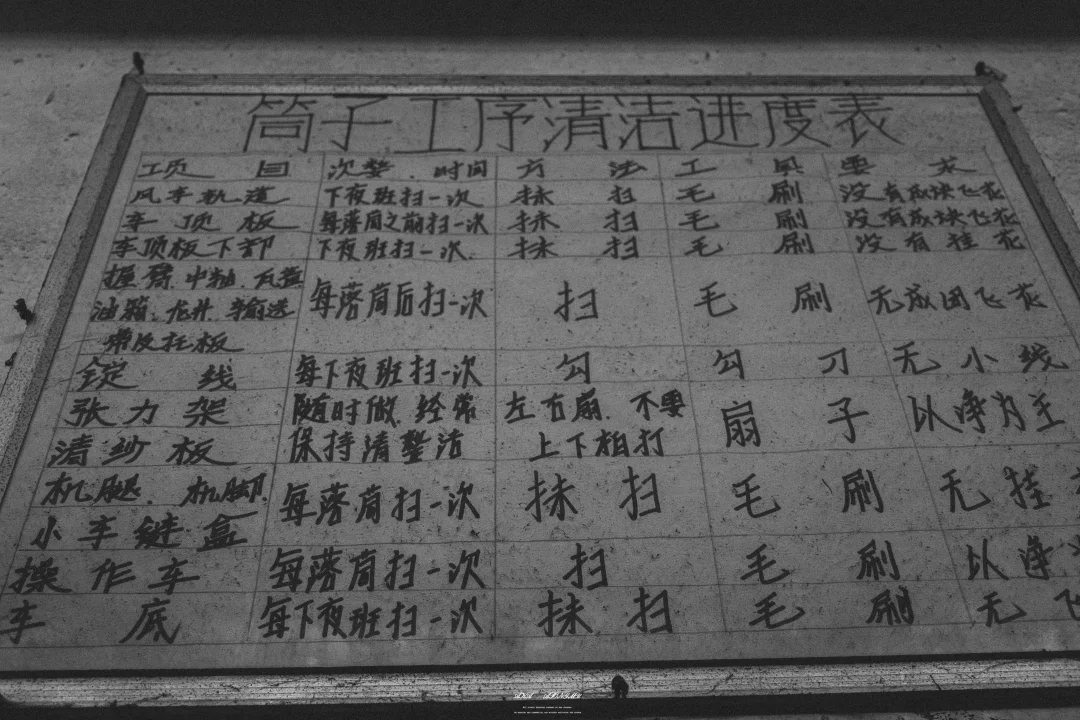 筒子工序清洁进度表
工项 目 次整.时间 方 法 工 具 要 求
风车轨道 下夜班扫一次 抹 扫 毛 刷 没有成块飞花
车 顶 板 每落筒之前扫一次 抹 扫 毛 刷 没有成块飞花
车顶板下部 下夜班扫一次. 抹 扫 毛 刷 没 有 挂 花
握臂.中轴.瓦盖
油箱.龙井.输送 每落筒后扫一次 扫 毛 刷 无成团飞花
带及托板
锭 线 每下夜班扫一次 勾 勾 刀 无 小 线
张 力 架 随时做.经常 左右扇.不要 扇 子 以净为主
清 纱 板 保持清整洁 上下相打
机腿.机脚. 每落筒扫一次 抹 扫 毛 刷 无 挂
小 车 链 盒
操 作 车 每落筒扫一次 扫 毛 刷 以 净
车 底 每下夜班扫一次 抹 扫 毛 刷 无 飞